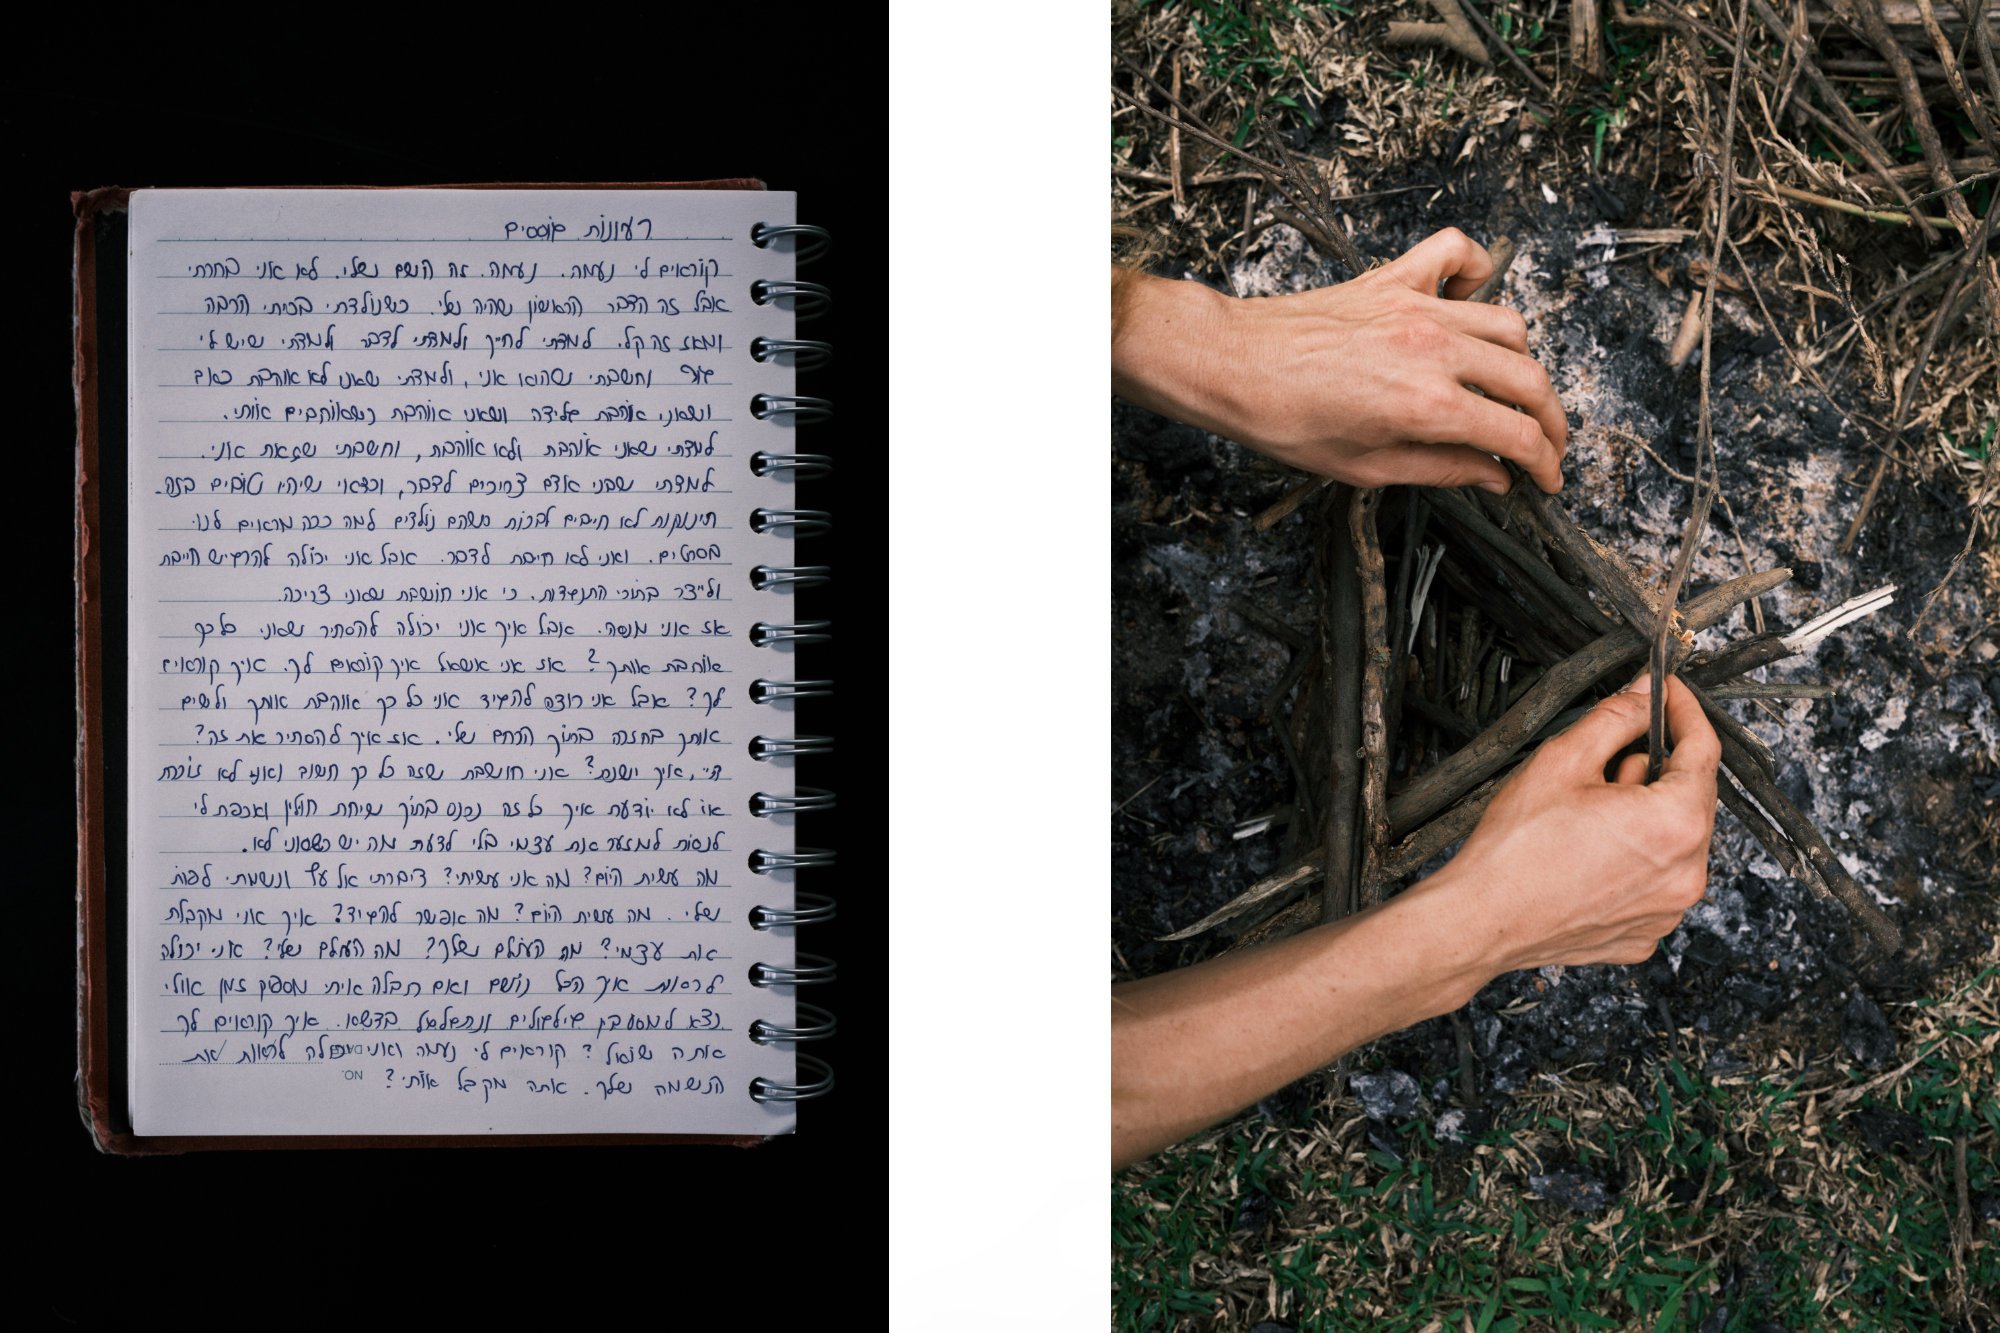 רעיונות גוססים
קוראים לי נעמה. נעמה. זה השם שלי. לא אני בחרתי
אבל זה הדבר הראשון שהיה שלי. כשנולדתי בכיתי הרבה
ומאז זה קל. למדתי לחייך ולמדתי לדבר ולמדתי שיש לי
גוף וחשבתי שהוא אני, ולמדתי שאני לא אוהבת כאב
ושאני אוהבת גלידה ושאני אוהבת כשאוהבים אותי.
למדתי שאני אוהבת ולא אוהבת, וחשבתי שזאת אני.
למדתי שבני אדם צריכים לדבר, וכדאי שיהיו טובים בזה.
תינוקות לא חייבים לבכות כשהם נולדים למה ככה מראים לנו
בסרטים. ואני לא חייבת לדבר. אבל אני יכולה להרגיש חייבת
ולייצר בתוכי התנגדות. כי אני חושבת שאני צריכה.
אז אני מנסה. אבל איך אני יכולה להסתיר שאני כל כך
אוהבת אותך? אז אני אשאל איך קוראים לך. איך קוראים
לך? אבל אני רוצה להגיד אני כל כך אוהבת אותך ולשים
אותך בחזרה בתוך הרחם שלי. אז איך להסתיר את זה?
היי, איך ישנת? אני חושבת שזה כל כך חשוב ואני לא זוכרת
או לא יודעת איך כל זה נכנס בתוך שיחת חולין ואכפת לי
לנסות למזער את עצמי בלי לדעת מה יש כשאני לא.
מה עשית היום? מה אני עשיתי? דיברתי אל עץ ונשמתי לפות
שלי. מה עשית היום? מה אפשר להגיד? איך אני מקבלת
את עצמי? מה העולם שלך? מה העולם שלי? אני יכולה
לראות איך הכל נושם ואם תבלה איתי מספיק זמן אולי
נצא למסע בגילגולים ונתגלגל בדשא. איך קוראים לך
אתה שואל? קוראים לי נעמה ואני יכולה לראות את
הנשמה שלך. אתה מקבל אותי?
DATE
NO.